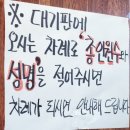 ※ 대기판에
오시는 차례로 '총인원수와
성명'을 적어주시면
차례가 되시면 안내해 드립니다